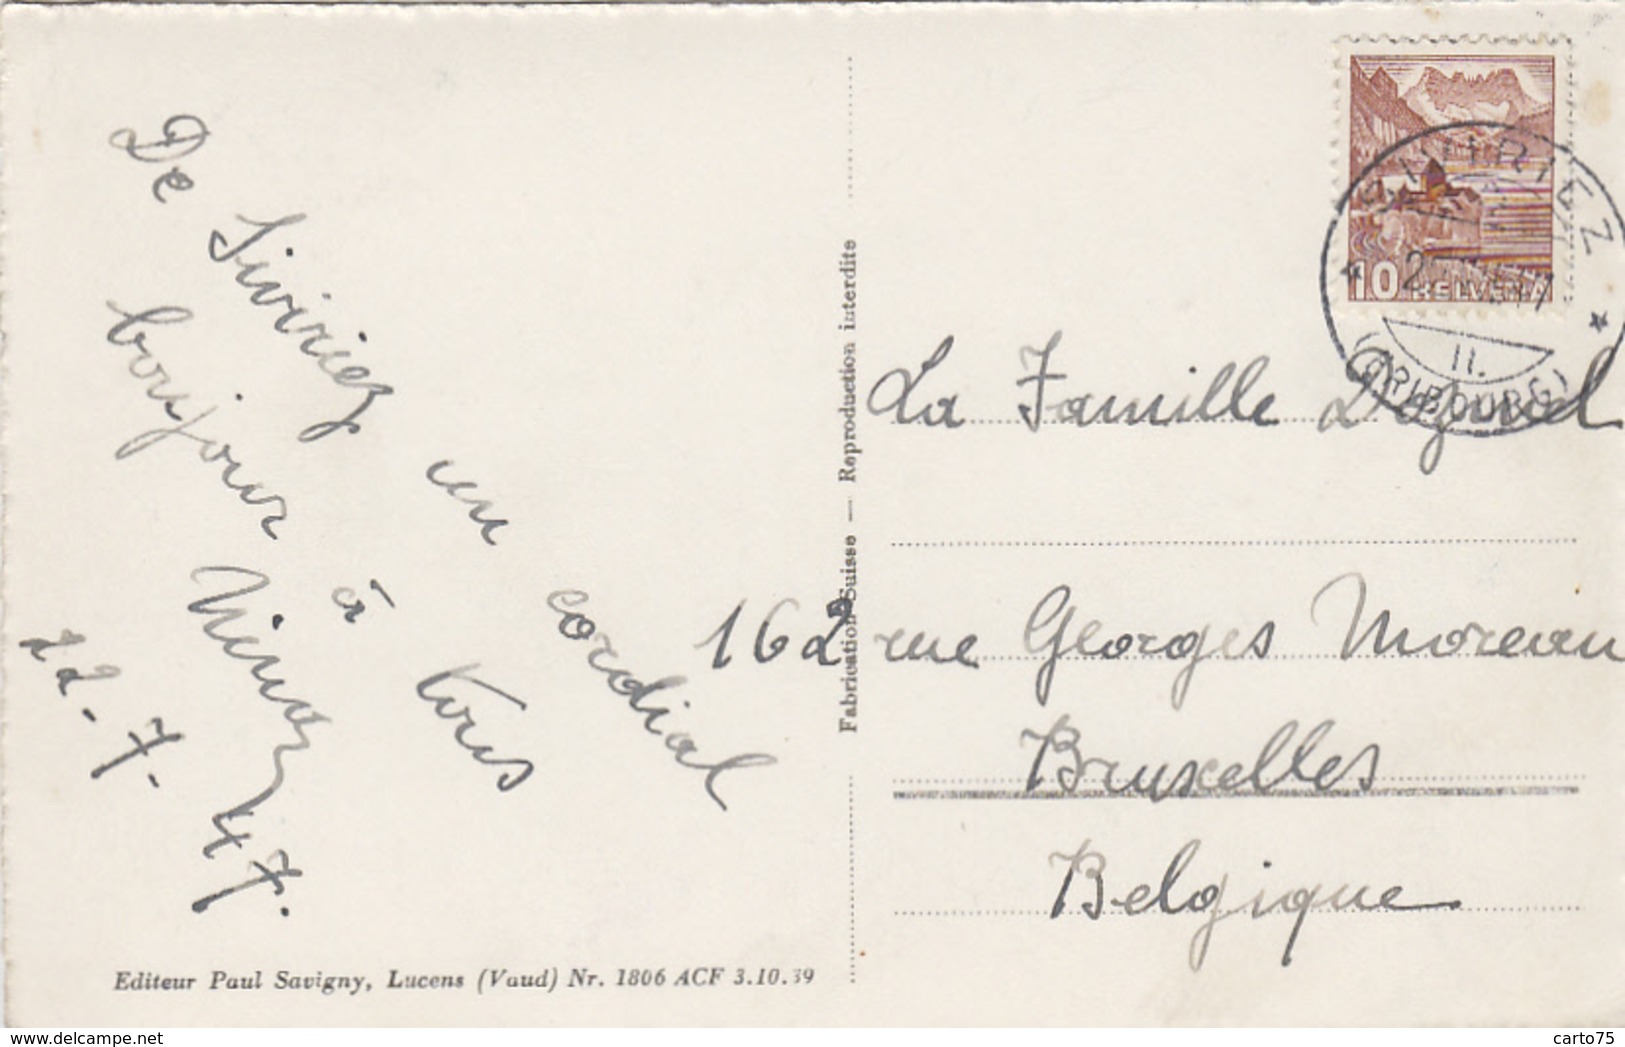 De Siviriez un cordial
bonjour à tous
22-7-47.
Fabrication Suisse — Reproduction interdite
10 HELVETIA
SIVIRIEZ
II.
(FRIBOURG)
La Famille
162 rue Georges Moreau
Bruxelles
Belgique
Editeur Paul Savigny, Lucens (Vaud) Nr. 1806 ACF 3.10.39
delcampe.net
carto75